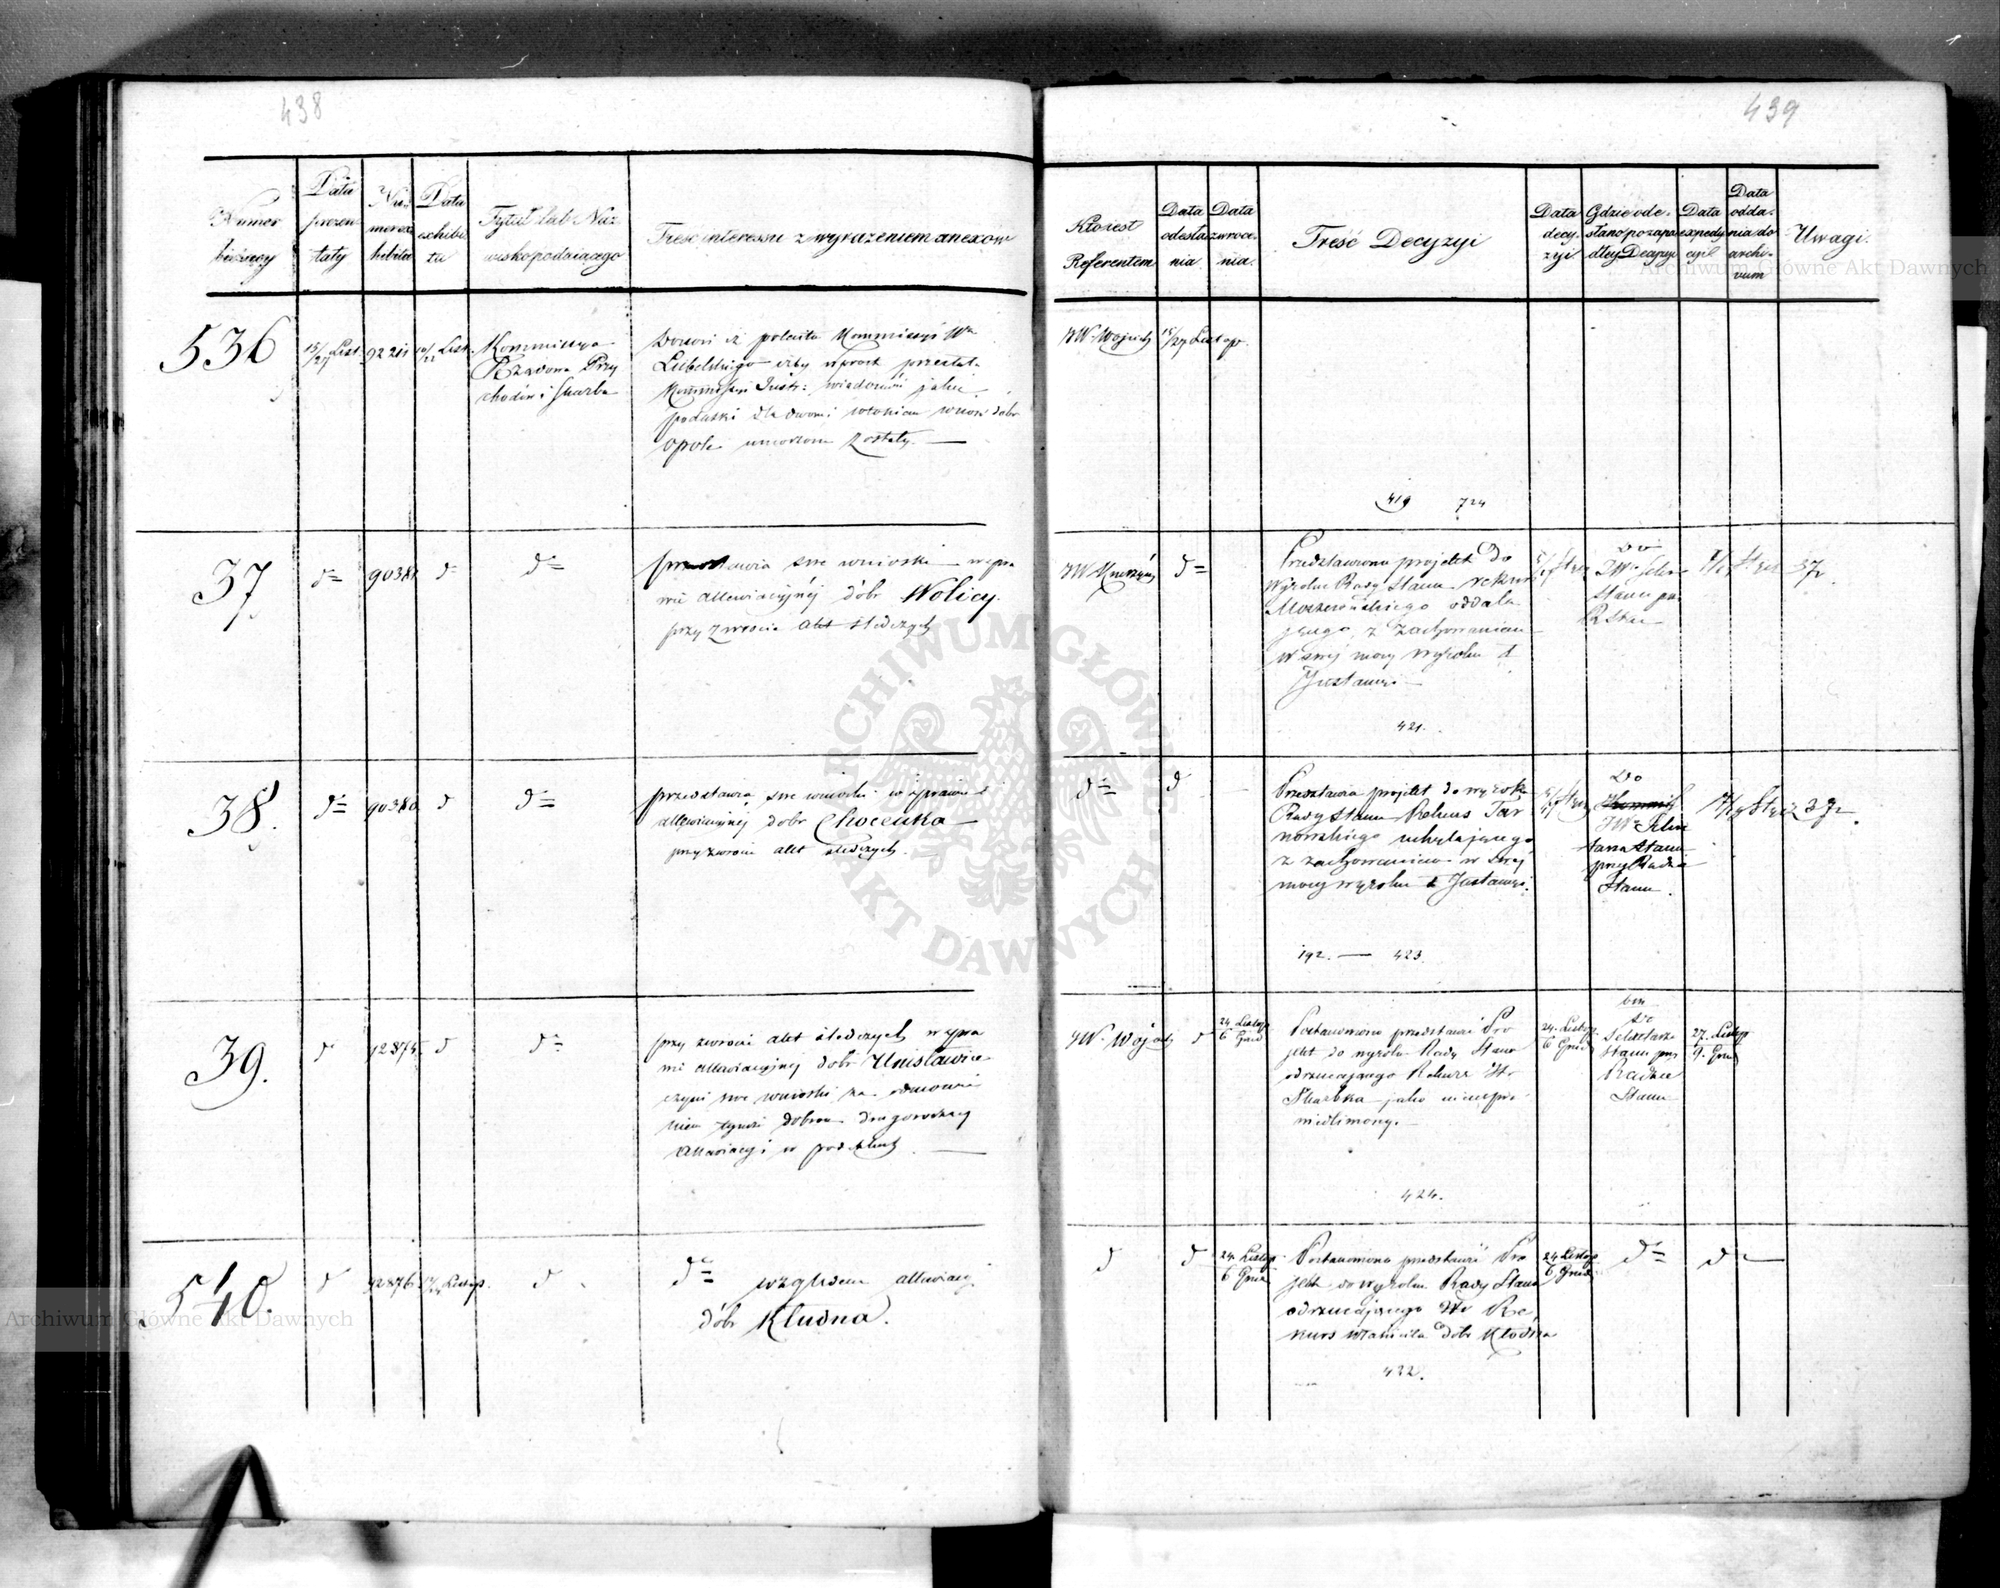 438
Numer bieżący
Data prezentaty
Numer exhibitu
Data exhibitu
Tytuł lub Nazwisko podaiącego
Treść interessu z wyrażeniem anexów
536
15/27 List.
92211
10/22 List.
Kommissya
Rządowa Przy
chodów i Skarbu
Donosi iż poleciła Kommissyi Wa
Lubelskiego ażby wprost przesłała
Kommissyi Justr: wiadomość jakie
podatki dla dworu i włościan wnosi dóbr
Opole umorzone zostały.
37
d=
9038
d
d=
przedstawia swe wnioski w spra
wie allewiacyjnéj dóbr Wolicy.
przy zwrocie akt śledczych
38.
d=
90380
d
d=
przedstawia swe wnioski w sprawie
allewiacyjnej dóbr Choceńka
przy zwrocie akt śledczych
39.
d
92875
d
d=
przy zwrocie akt śledczych w spra
wie allewiacyjnej dóbr Unisławice
czyni swe wnioski za odmówie
niem tymże dobrom drugorocznej
allewiacyi w podatkach
540.
d
92876
Listop.
d
d= względem allewiacyi
dóbr Kłudna.
439
Kto jest Referentem
Data odesłania
Data zwrócenia.
Treść Decyzyi
Data decyzyi
Gdzie odesłano po zapadłey Decyzyi
Data expedycyi
Data oddania do archivum
Uwagi.
JW. Wojcick
15/27 Listop.
419 724
d=
Przedstawiono projekt do
Wyroku Rady Stanu rekurs
Moszkowskiego oddala
jącego, z zachowaniem
w swéj mocy wyroku I
Instancyi
Do
JW. Sekre
Stanu przy
R. Stanu
37r
421.
d=
d
Przedstawia projekt do wyroku
Rady Stanu Rekurs Tar
nowskiego uchylającego
z zachowaniem w swej
mocy wyroku I Instancyi.
Do
JW. Sekre
tarza Stanu
przy Radzie
Stanu.
37r.
192. — 423
JW. Wójcick
d
24. Listop
6 Grud
Postanowiono przedstawić Pro
jekt do wyroku Rady Stanu
odrzucającego Rekurs Wo
Skarbka jako nieuspra
wiedliwiony.
24. Listop.
6 Grud
Do
Sekretarza
Stanu przy
Radzie
Stanu
27. Listop
9. Gru
424.
d
d
24. Listop.
6 Grud
Postanowiono przedstawić Pro
jekt do wyroku Rady Stanu
odrzucającego Wo Re
kurs właściciela dóbr Kłódna
24 Listop
6 Grud
d=
d
432.
Archiwum Główne Akt Dawnych
ARCHIWUM GŁÓWNE AKT DAWNYCH
Archiwum Główne Akt Dawnych